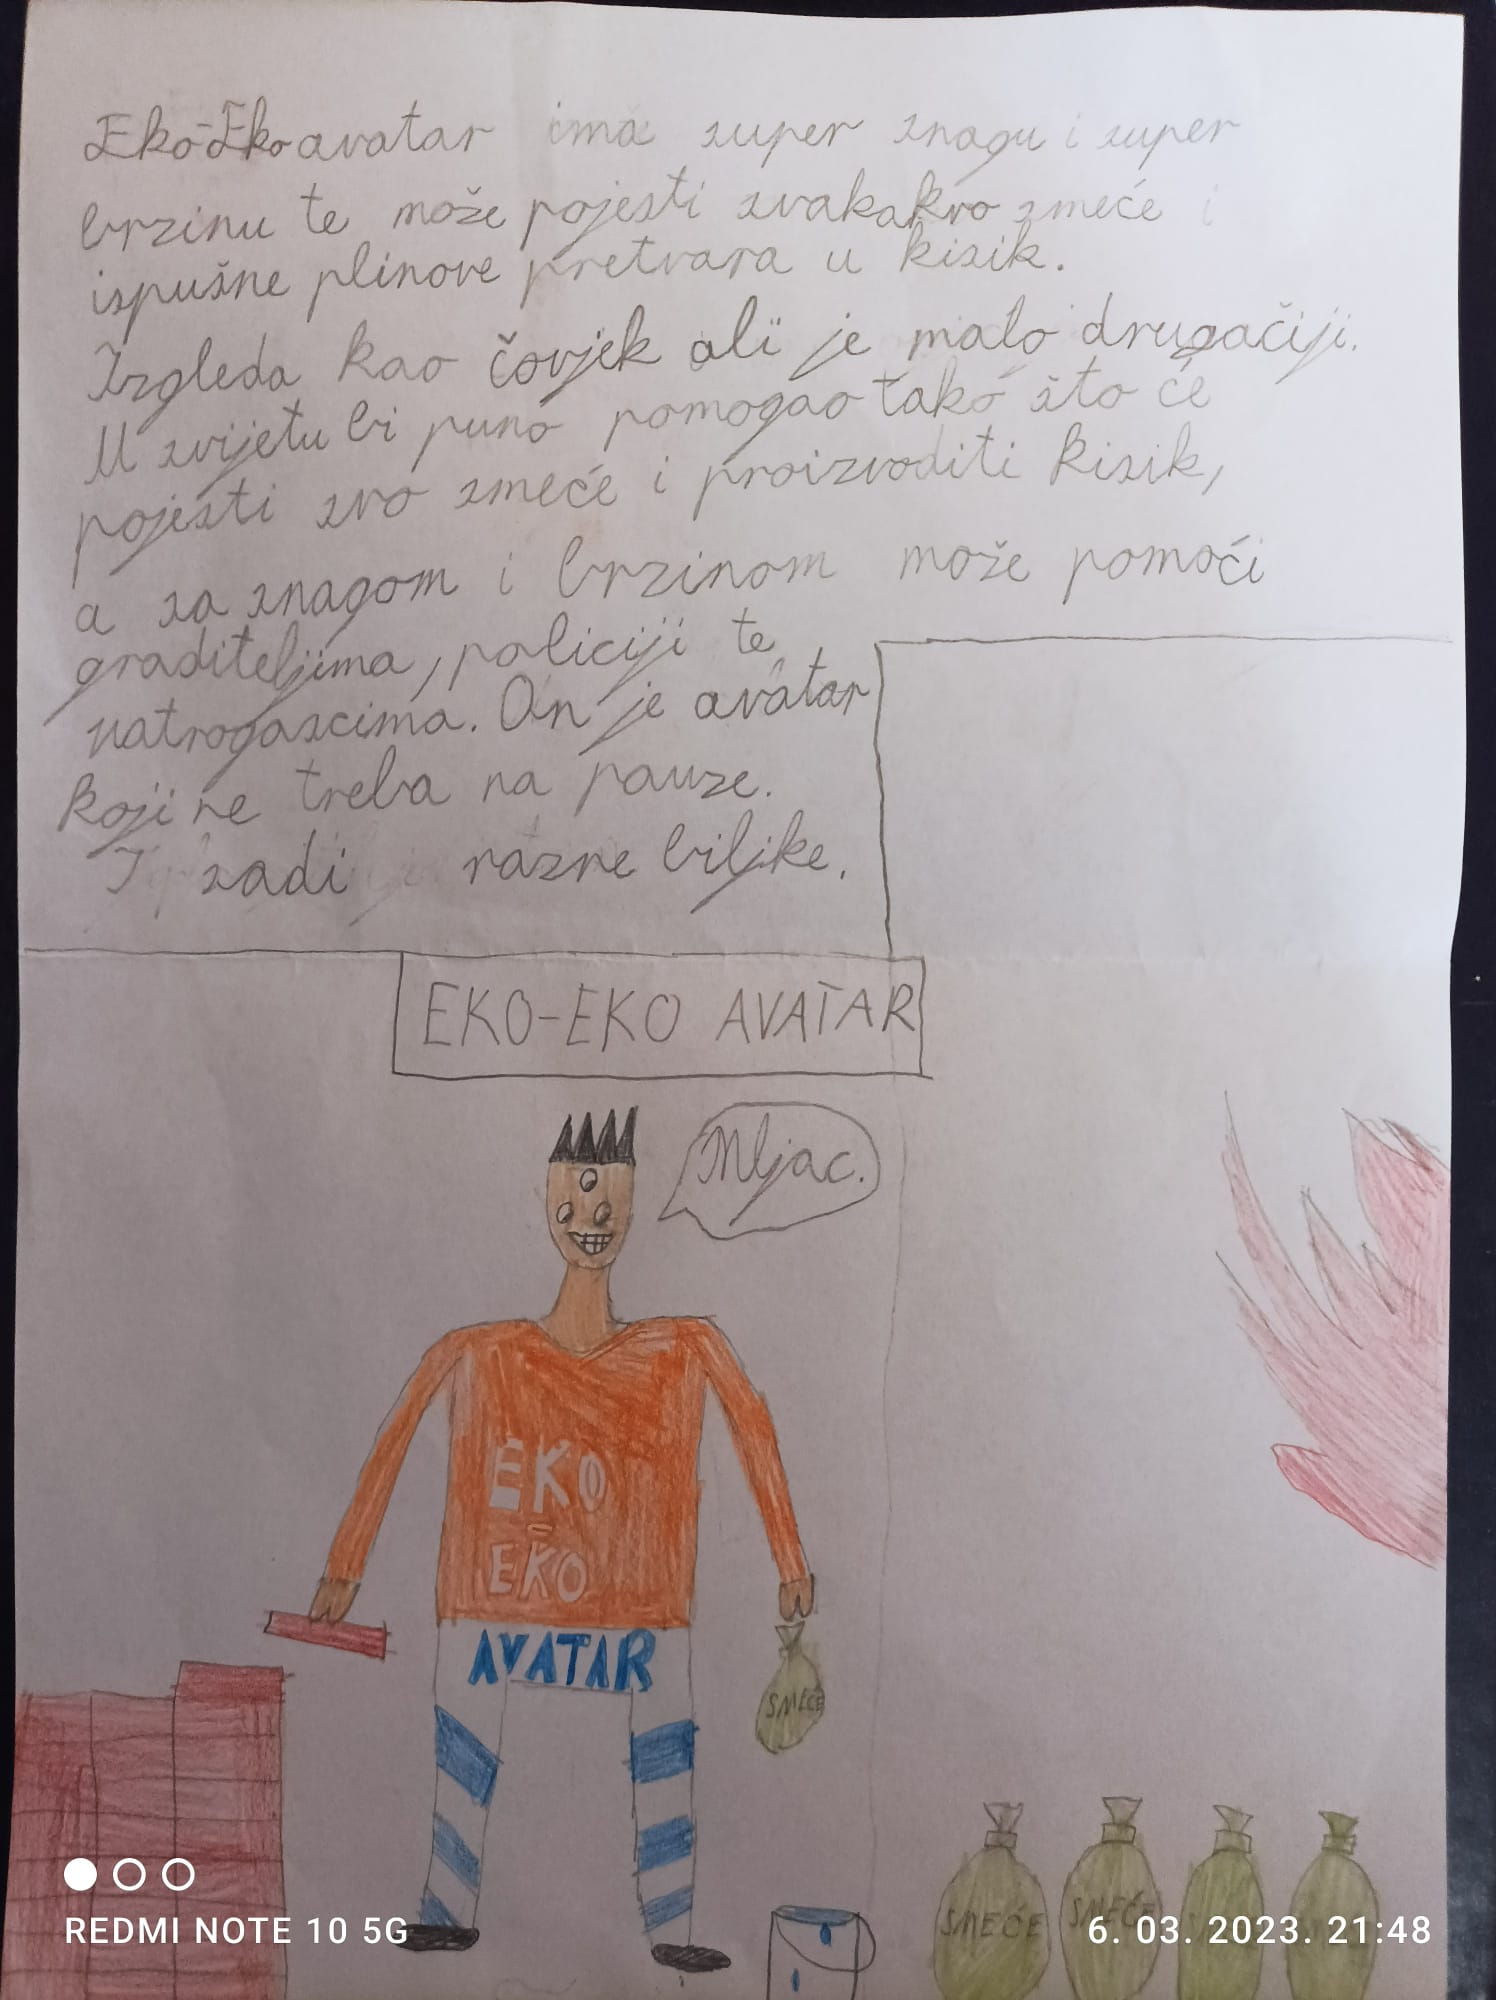 Eko-Eko avatar ima super snagu i super
brzinu te može pojesti svakakvo smeće i
ispušne plinove pretvara u kisik.
Izgleda kao čovjek ali je malo drugačiji.
U svijetu bi puno pomogao tako što će
pojesti svo smeće i proizvoditi kisik,
a sa snagom i brzinom može pomoći
graditeljima, policiji te
vatrogascima. On je avatar
koji ne treba na pauze.
I sadi razne biljke.
EKO-EKO AVATAR
Mljac.
EKO
-
EKO
AVATAR
SMEĆE
SMEĆE SMEĆE
REDMI NOTE 10 5G 6. 03. 2023. 21:48